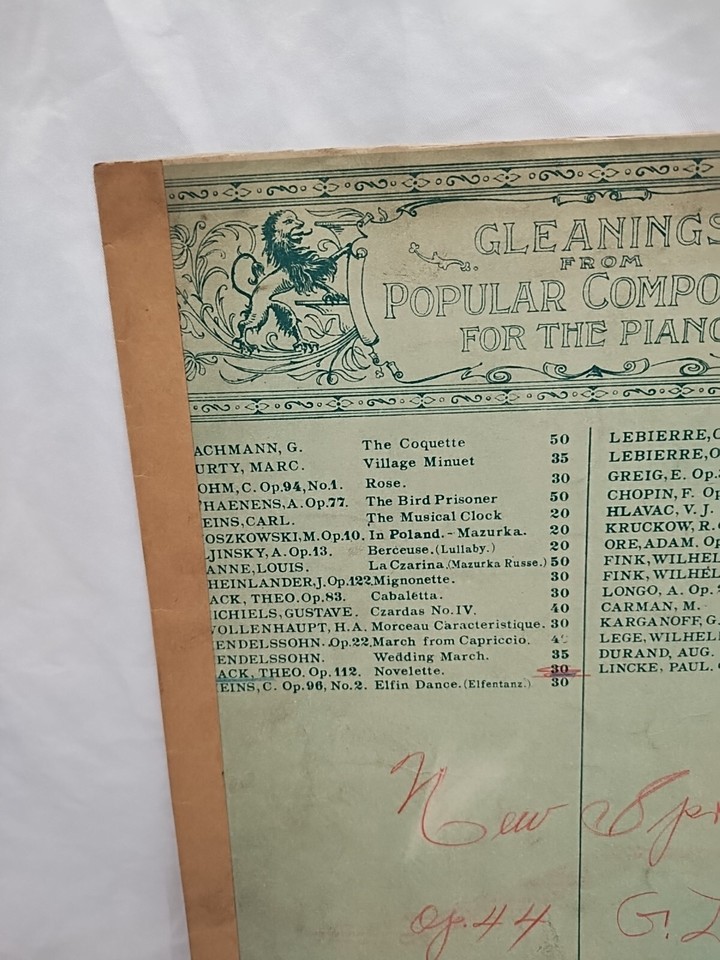 GLEANINGS
FROM
POPULAR COMPO
FOR THE PIANO
ACHMANN, G. The Coquette 50
URTY, MARC. Village Minuet 35
OHM, C. Op.94, No.1. Rose. 30
'HAENENS, A. Op.77. The Bird Prisoner 50
EINS, CARL. The Musical Clock 20
OSZKOWSKI, M. Op.10. In Poland. - Mazurka. 20
LJINSKY, A. Op.13. Berceuse. (Lullaby.) 20
ANNE, LOUIS. La Czarina. (Mazurka Russe.) 50
HEINLANDER, J. Op.122. Mignonette. 30
ACK, THEO. Op.83. Cabaletta. 30
ICHIELS, GUSTAVE. Czardas No. IV. 40
VOLLENHAUPT, H.A. Morceau Caracteristique. 30
ENDELSSOHN. Op.22. March from Capriccio.
ENDELSSOHN. Wedding March. 35
ACK, THEO. Op.112. Novelette. 30
EINS, C. Op.96, No.2. Elfin Dance. (Elfentanz.) 30
LEBIERRE, O
LEBIERRE, O
GREIG, E. Op.
CHOPIN, F. Op
HLAVAC, V. J.
KRUCKOW, R.
ORE, ADAM. Op
FINK, WILHEL
FINK, WILHEL
LONGO, A. Op.
CARMAN, M.
KARGANOFF, G.
LEGE, WILHEL
DURAND, AUG.
LINCKE, PAUL.
New Spr
Op. 44 G. L